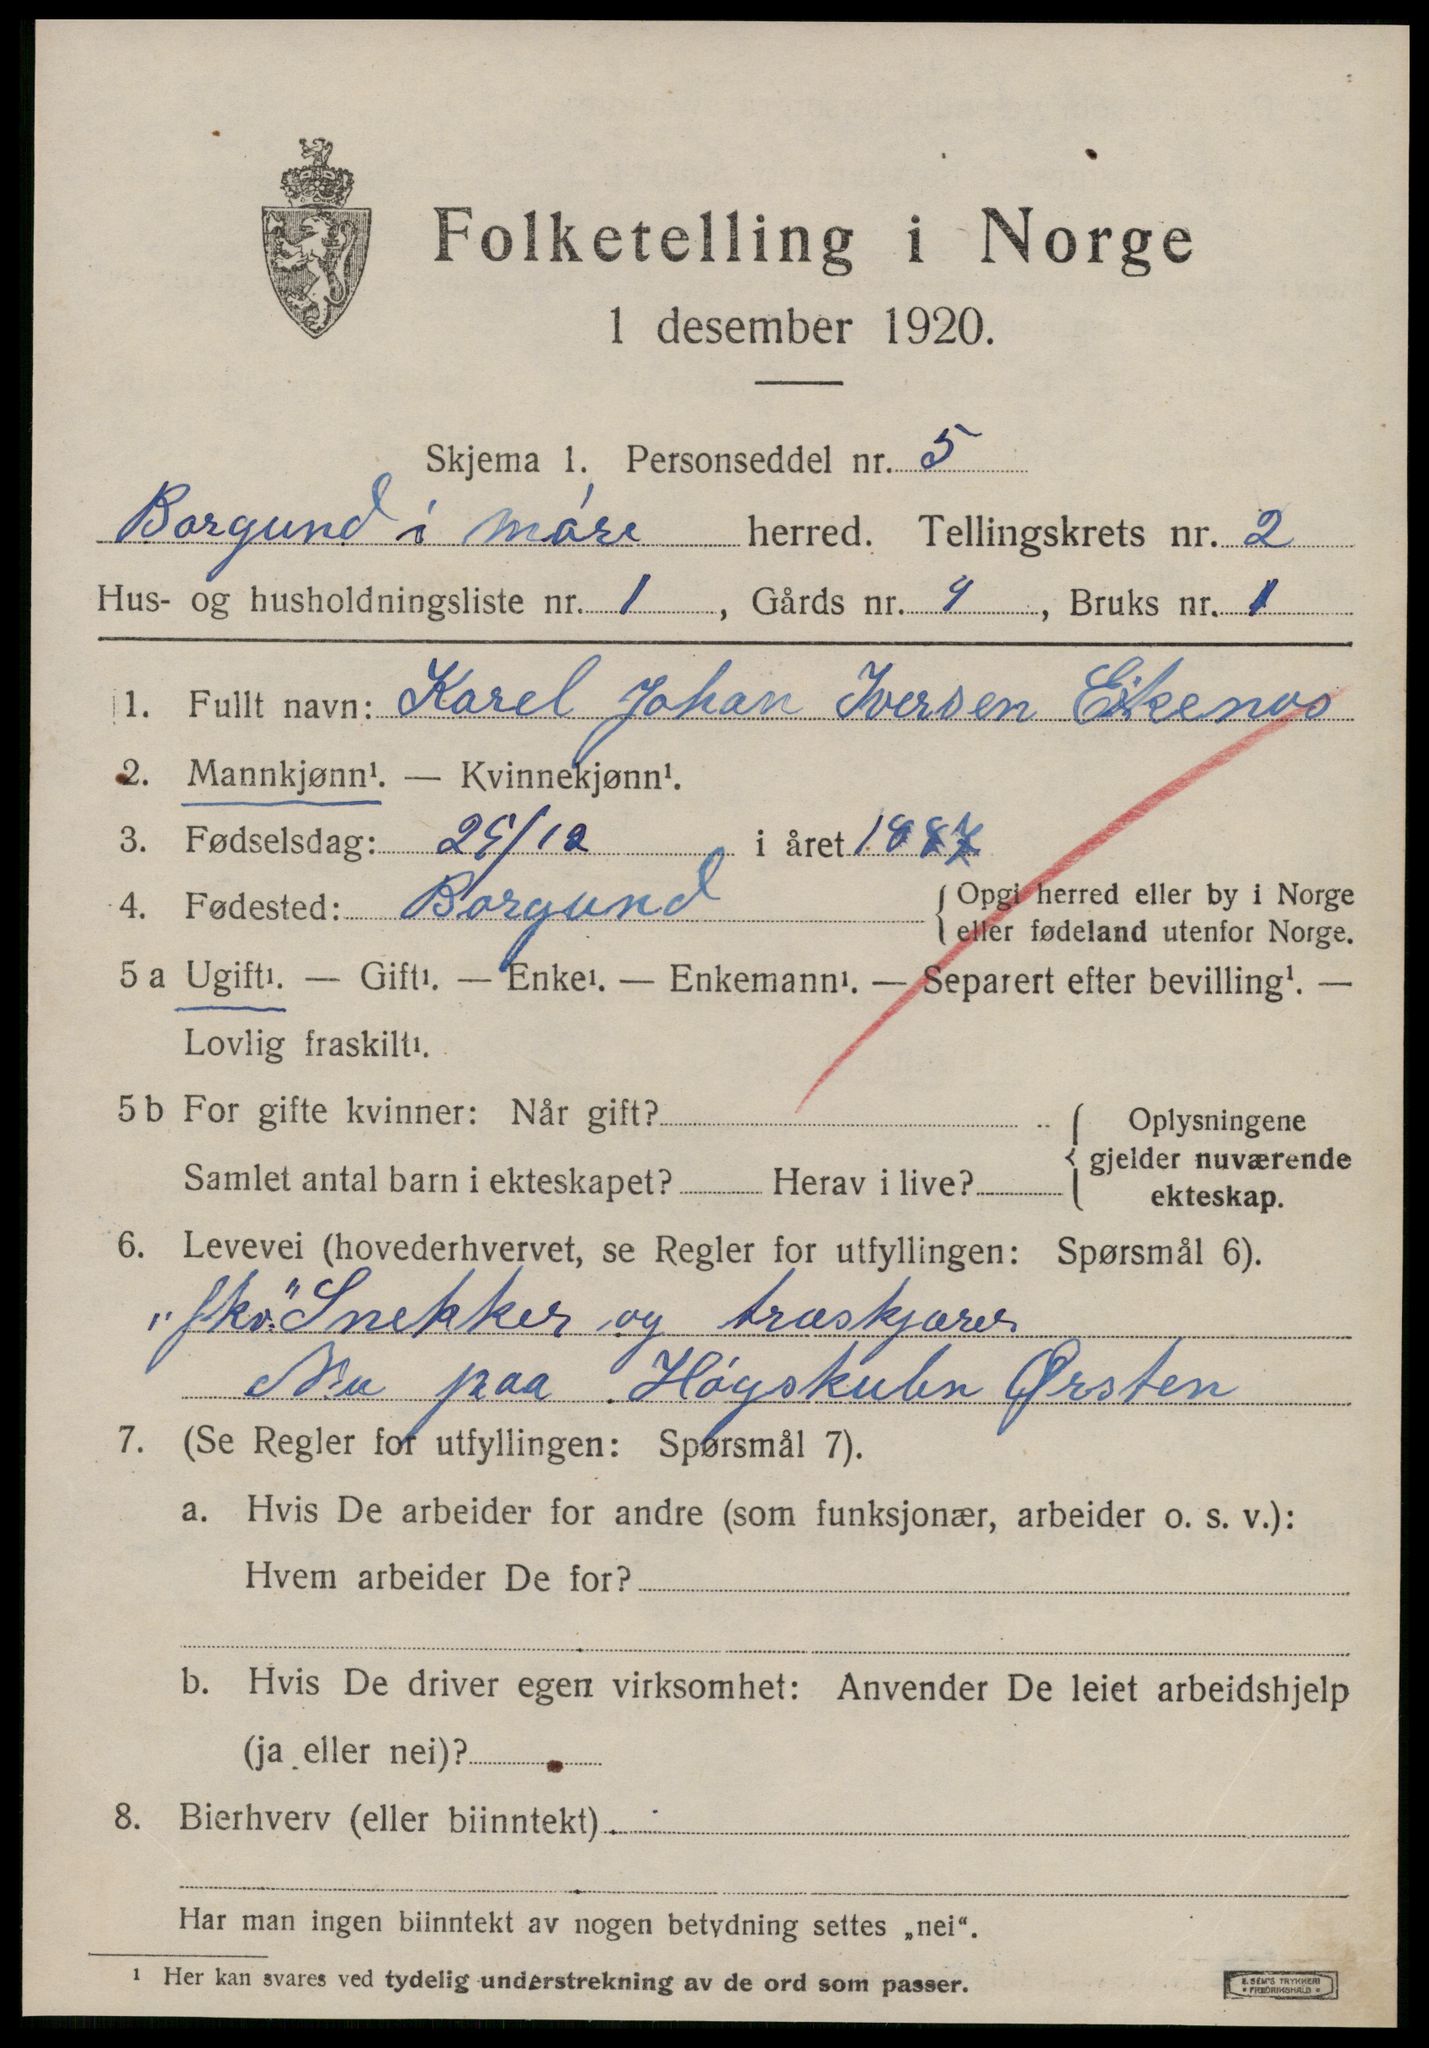 Folketelling i Norge
1 desember 1920.
Skjema 1. Personseddel nr. 5
Borgund i Møre herred. Tellingskrets nr. 2
Hus- og husholdningsliste nr. 1, Gårds nr. 9, Bruks nr. 1
1. Fullt navn: Karel Johan Iversen Eikenos
2. Mannkjønn¹. — Kvinnekjønn¹.
3. Fødselsdag: /12 i året 1887
4. Fødested: Borgund { Opgi herred eller by i Norge
eller fødeland utenfor Norge.
5 a Ugift¹. — Gift¹. — Enke¹. — Enkemann¹. — Separert efter bevilling¹. —
Lovlig fraskilt¹.
5 b For gifte kvinner: Når gift? { Oplysningene
gjelder nuværende
Samlet antal barn i ekteskapet? Herav i live?
ekteskap.
6. Levevei (hovederhvervet, se Regler for utfyllingen: Spørsmål 6).
Snekker og træskjærer
Nu paa Høgskuln Ørsten
7. (Se Regler for utfyllingen: Spørsmål 7).
a. Hvis De arbeider for andre (som funksjonær, arbeider o. s. v.):
Hvem arbeider De for?
b. Hvis De driver egen virksomhet: Anvender De leiet arbeidshjelp
(ja eller nei)?
8. Bierhverv (eller biinntekt)
Har man ingen biinntekt av nogen betydning settes „nei“.
¹ Her kan svares ved tydelig understrekning av de ord som passer.
E. SEM'S TRYKKERI
* FREDRIKSHALD *